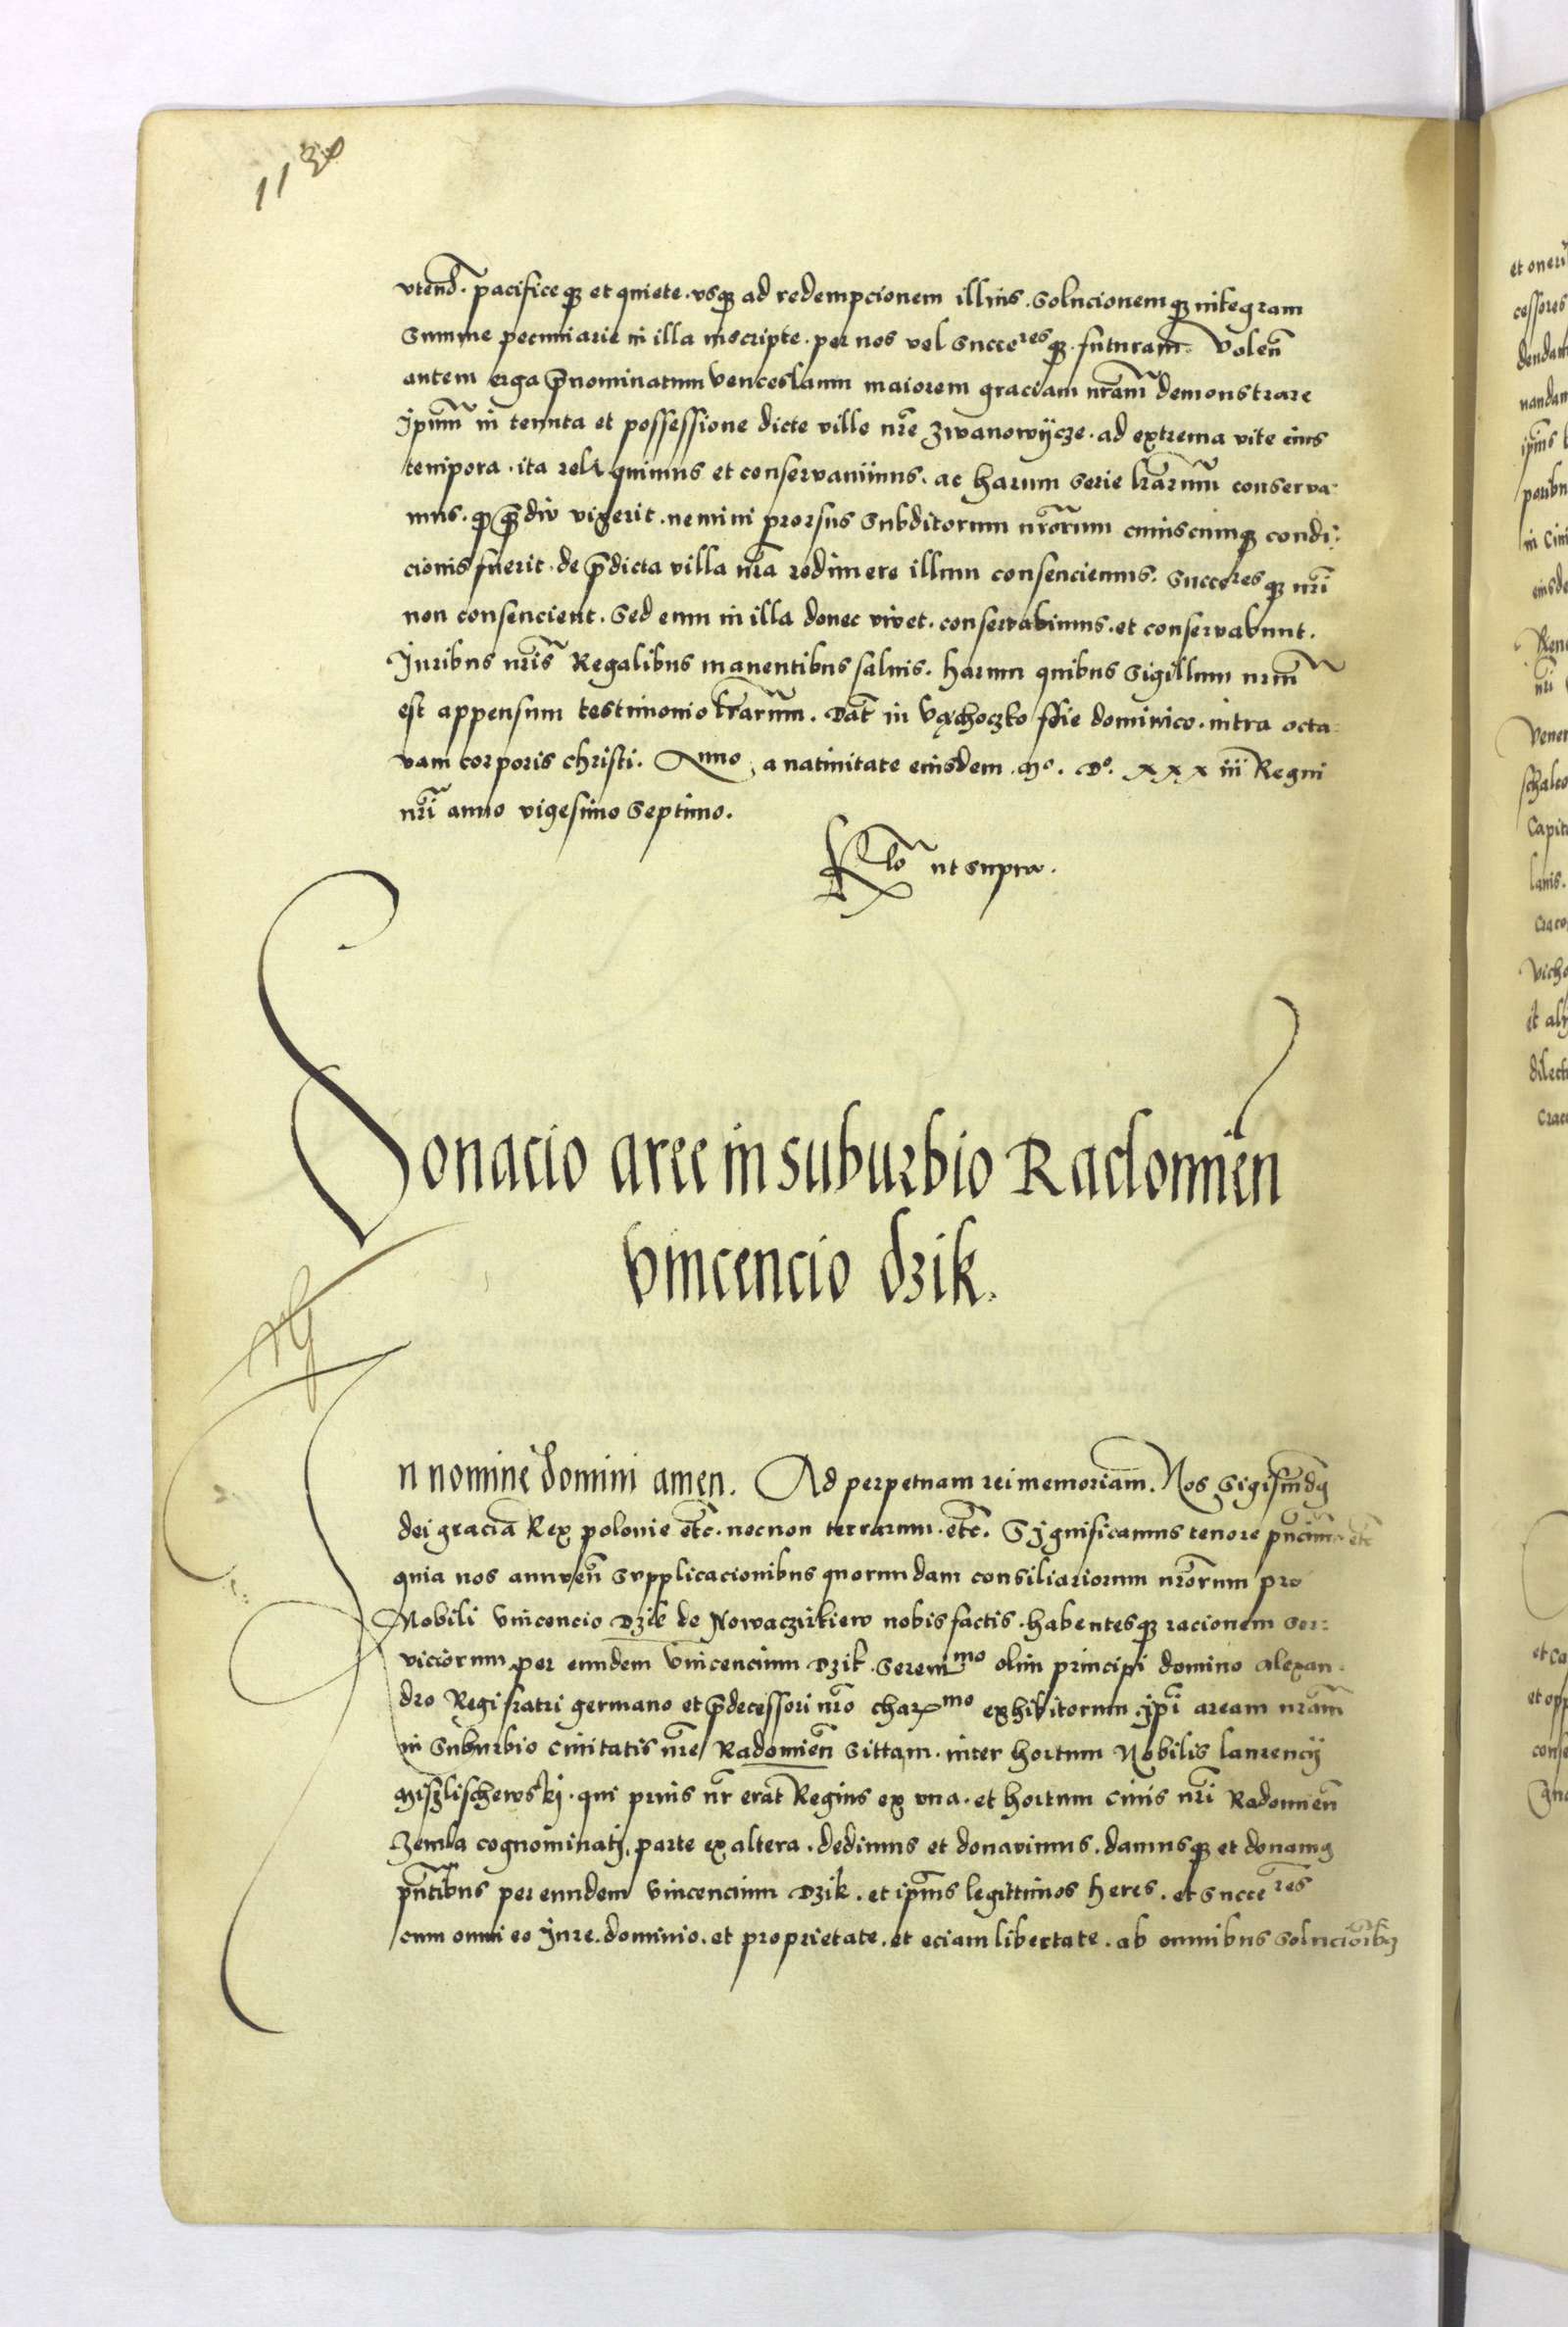 1130
vtend̃. pacifice q₃ et quiete. vsq₃ ad redempcionem illius. Solucionem q₃ integram
Summe pecuniarie in illa inscripte. per nos vel Succeres q₃. futuram. Volen̄
autem erga p̄nominatum venceslaum maiorem graciam nr̄am demonstrare
Ipum̄ in tenuta et possessione dicte ville nr̄e zwanowÿcze. ad extrema vite eius
tempora. ita reliquimus et conservavimus. ac harum Serie lr̄arum̄ conserva-
mus. qd̄ q̄ diu vixerit. nemini prorsus Subditorum nr̄orum cuiuscumq₃ condi-
cionis fuerit. de p̄dicta villa nr̄a redimere illum consenciemus. Succeres q₃ nr̄i
non consencient. Sed eum in illa donec vivet. conservabimus. et conservabunt.
Iuribus nr̄is Regalibus manentibus salvis. harum quibus Sigillum nr̄um
est appensum testimonio lr̄arum̄. Dat̄ in Vąchoczko f̄ie dominico. intra octa-
vam corporis christi. Anno a natiuitate eiusdem. Mº. Dº. xxx iii Regni
nr̄i anno vigesimo Septimo.
Rlō ut supra.
Donacio aree in suburbio Radomien̄
Vincencio dzik.
In nomine domini amen. Ad perpetuam rei memoriam. Nos Sigismūdꝯ
dei gracia Rex polonie etc̄. necnon terrarum. etc̄. Significamus tenore pn̄cium̄ etc̄
quia nos annuen̄ Supplicacionibus quorundam consiliariorum nr̄orum pro
Nobili Vincencio Dzik de Nowaczirkiew nobis factis. habentesq₃ racionem Ser-
viciorum per eundem Vincencium Dzik. Serenimo olim principi domino Alexan-
dro Regi fratri germano et p̄decessori nr̄o charmo exhibitorum. ip̄i aream nr̄am
in Suburbio Ciuitatis nr̄e Radomien̄ Sittam. inter hortum Nobilis laurencij
Miszlischewskj. qui prius nr̄ erat Regius ex vna. et hortum Ciuis nr̄i Radomien̄
Zemla cognominatj, parte ex altera. dedimus et donavimus. damusq₃ et donamꝯ
pn̄tibus per eundem Vincencium Dzik. et ipiūs legittimos heres. et Succeres
cum omni eo Iure. dominio. et proprietate. et eciam libertate. ab omnibus Solucioībꝯ